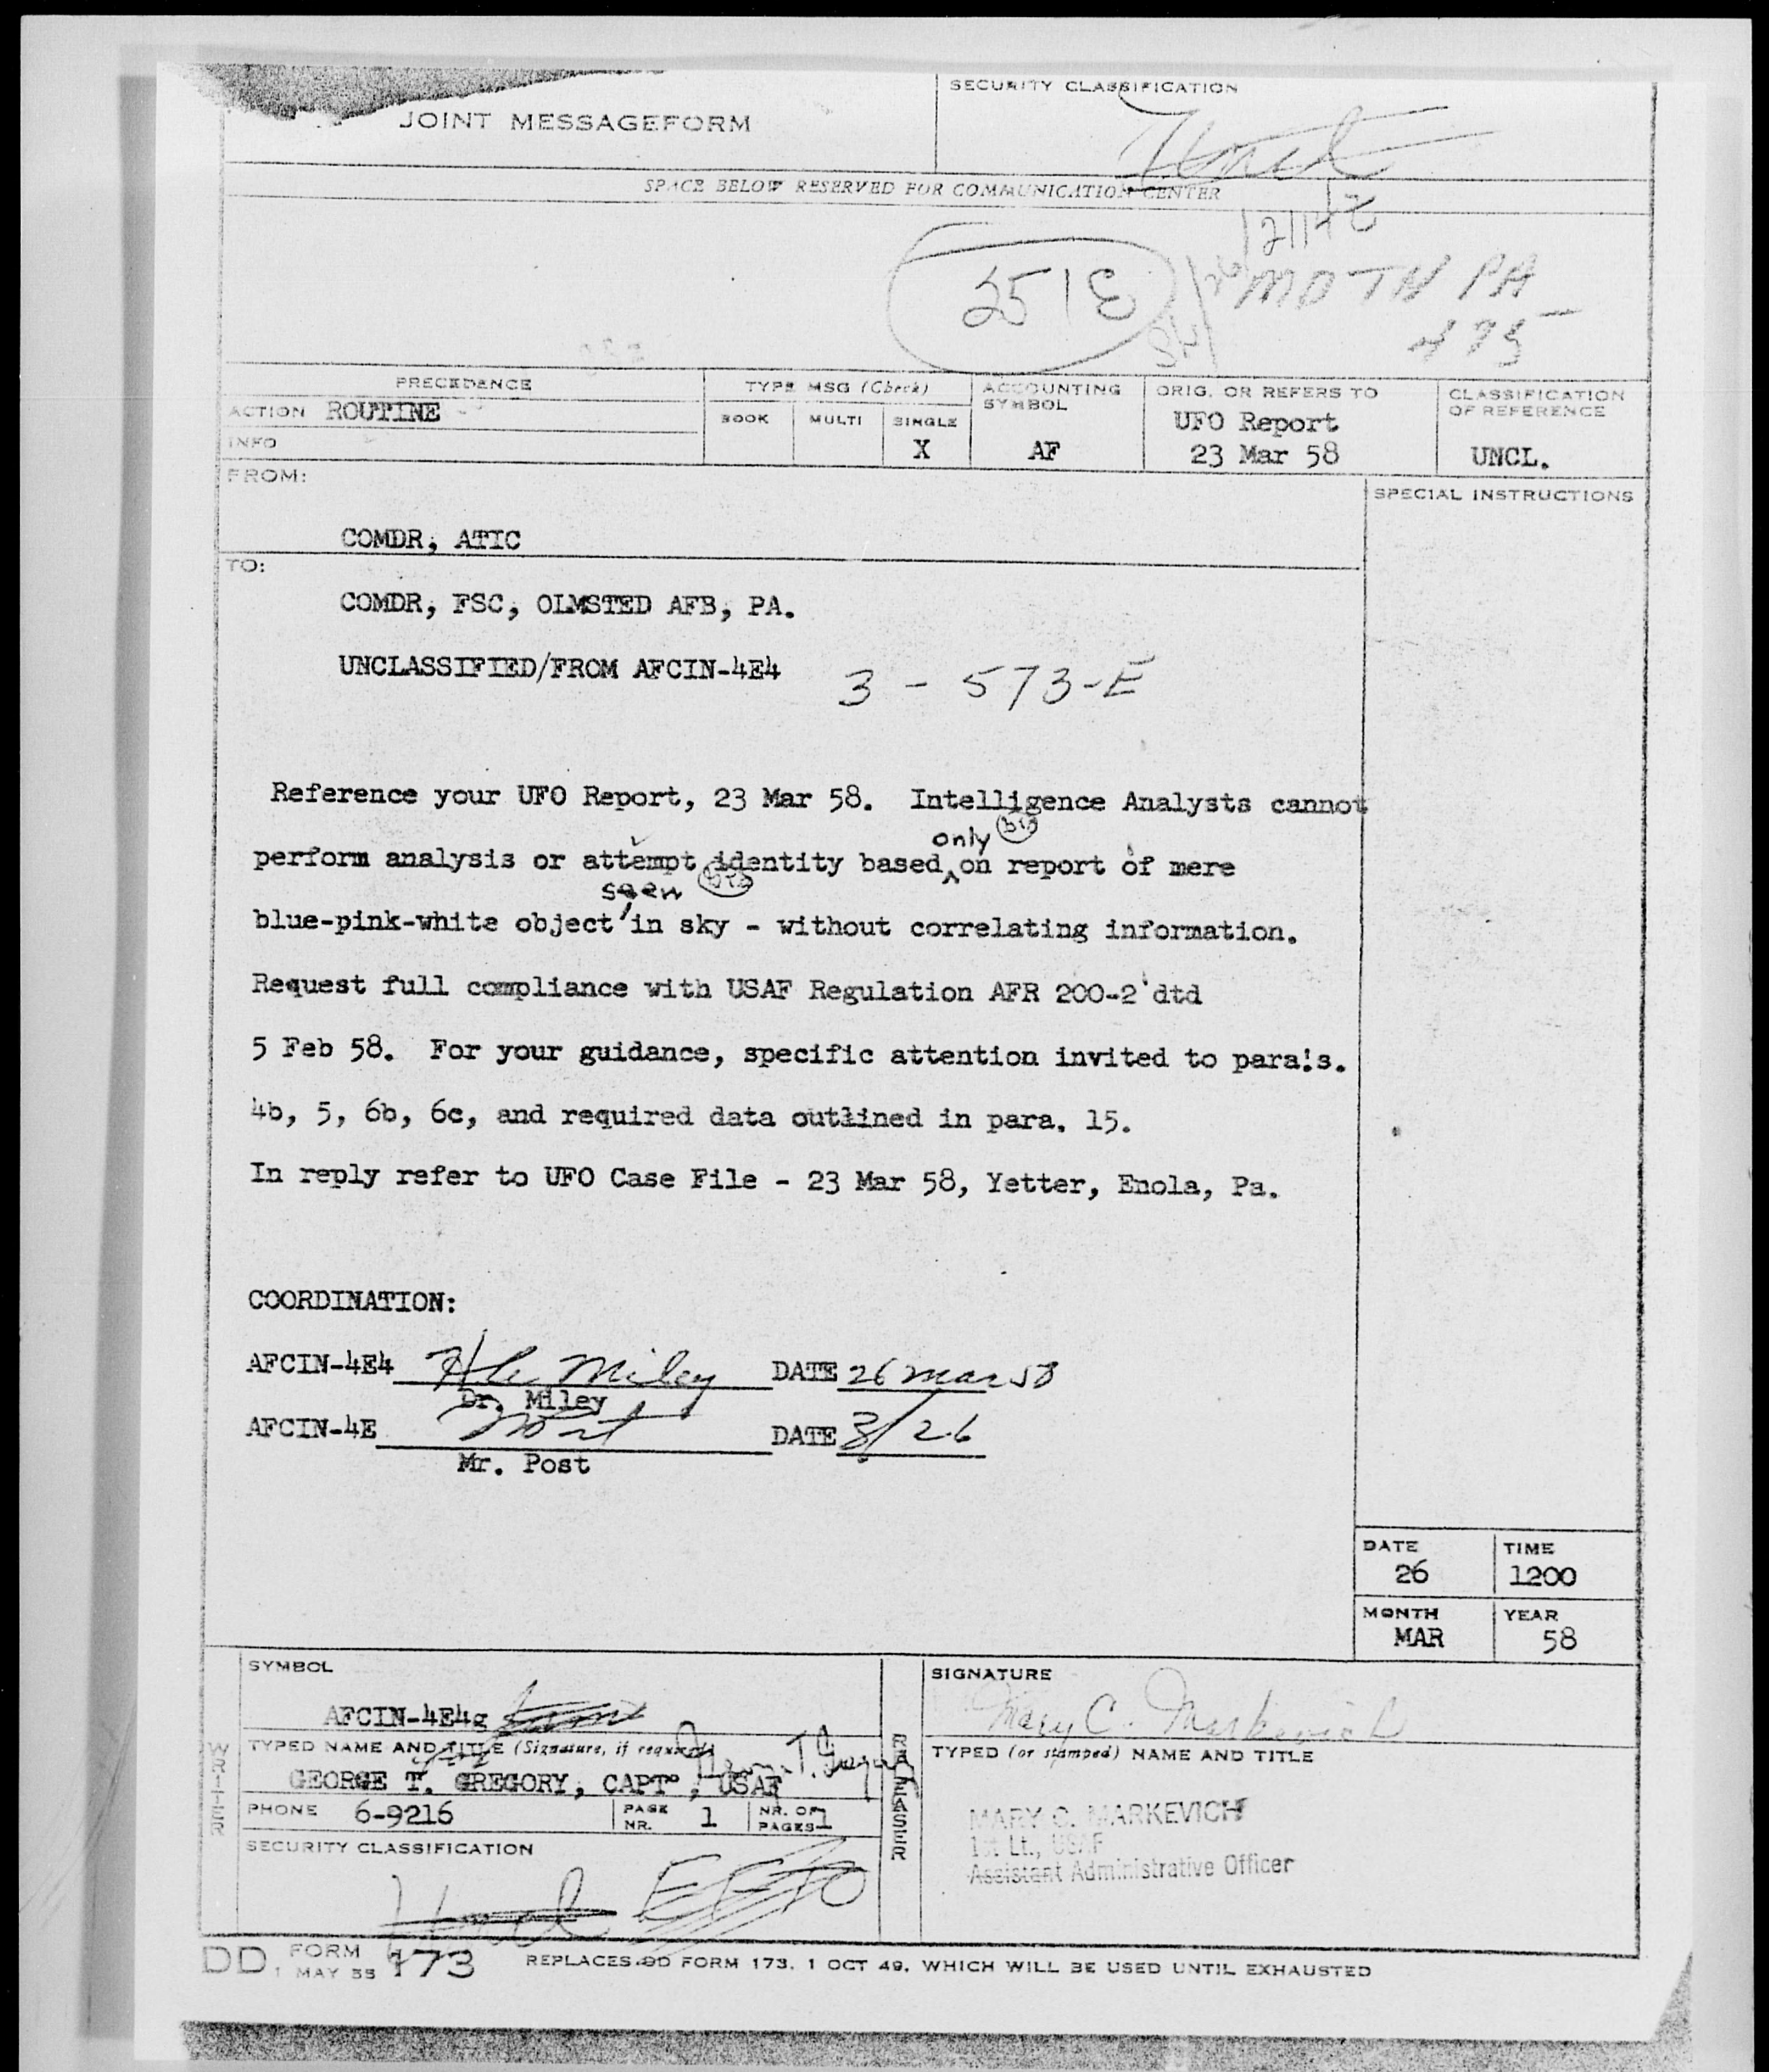 JOINT MESSAGEFORM
SECURITY CLASSIFICATION
SPACE BELOW RESERVED FOR COMMUNICATION CENTER
MDTN PA
PRECEDENCE
TYPE MSG (Check)
ACCOUNTING SYMBOL
ORIG. OR REFERS TO
CLASSIFICATION OF REFERENCE
ACTION ROUTINE
BOOK MULTI SINGLE
UFO Report
INFO
X AF 23 Mar 58 UNCL.
FROM:
SPECIAL INSTRUCTIONS
COMDR, ATIC
TO:
COMDR, FSC, OLMSTED AFB, PA.
UNCLASSIFIED/FROM AFCIN-4E4 3 - 573-E
Reference your UFO Report, 23 Mar 58. Intelligence Analysts cannot
only
perform analysis or attempt identity based on report of mere
seen
blue-pink-white object in sky - without correlating information.
Request full compliance with USAF Regulation AFR 200-2 dtd
5 Feb 58. For your guidance, specific attention invited to para's.
4b, 5, 6b, 6c, and required data outlined in para. 15.
In reply refer to UFO Case File - 23 Mar 58, Yetter, Enola, Pa.
COORDINATION:
AFCIN-4E4 Miley DATE 26 Mar 58
Dr. Miley
AFCIN-4E Post DATE 3/26
Mr. Post
DATE TIME
26 1200
MONTH YEAR
MAR 58
WRITER
SYMBOL
AFCIN-4E4g
TYPED NAME AND TITLE (Signature, if required)
GEORGE T. GREGORY, CAPT., USAF
PHONE 6-9216 PAGE NR. 1 NR. OF PAGES 1
SECURITY CLASSIFICATION
RELEASER
SIGNATURE
Mary C. Markevich
TYPED (or stamped) NAME AND TITLE
MARY C. MARKEVICH
1st Lt., USAF
Assistant Administrative Officer
DD FORM 1 MAY 55 173 REPLACES DD FORM 173, 1 OCT 49, WHICH WILL BE USED UNTIL EXHAUSTED